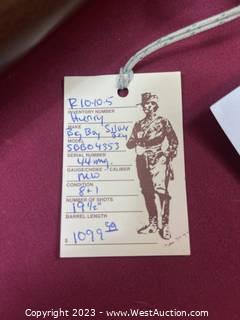 R10-10-5
INVENTORY NUMBER
Henry
MAKE
Big Boy Silver
MODEL
SBB04353
SERIAL NUMBER
44 mag.
GAUGE/CHOKE - CALIBER
new
CONDITION
8+1
NUMBER OF SHOTS
19 1/2"
BARREL LENGTH
$ 1099 50
© 2023 - WestAuction.com